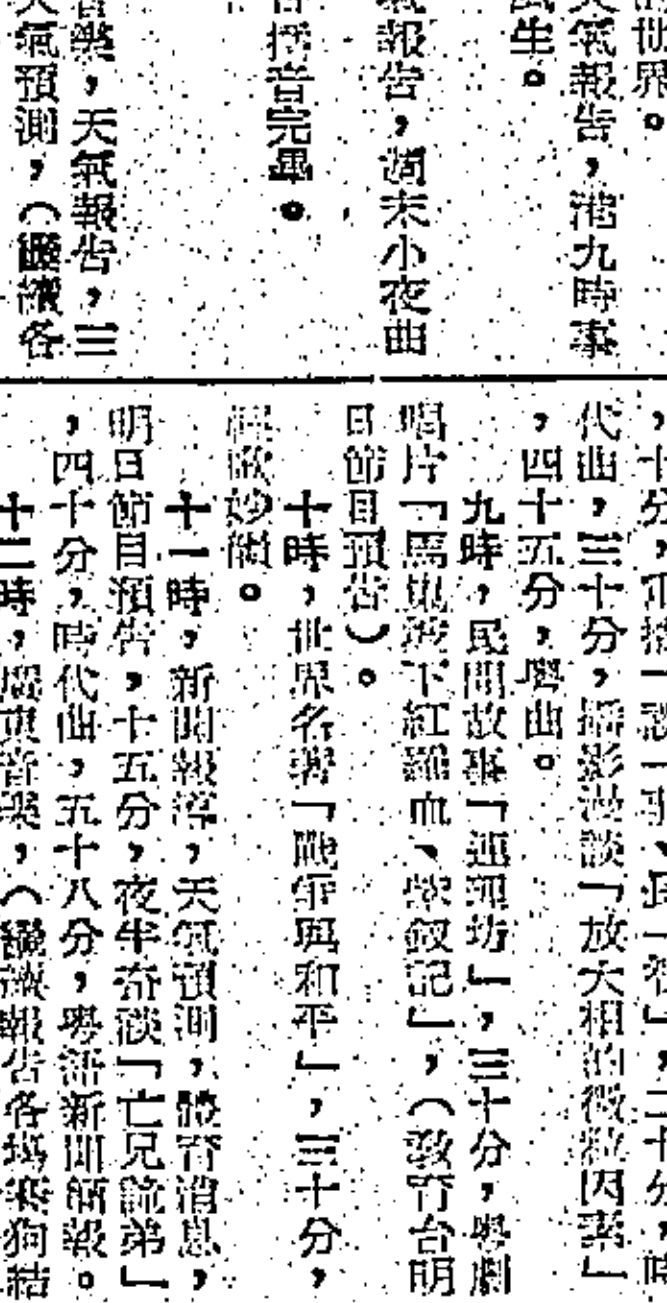 的世界。
天氣報告，港九時事
風生。
氣報告，週末小夜曲
播音完畢。
音樂，天氣報告，三
天氣預測，（繼續各
，十分，一事、長一智」，二十分，時
代曲，三十分，攝影漫談「放大相的微粒因素」
，四十五分，粵曲。
九時，民間故事「連理坊」，三十分，粵劇
唱片「馬嵬坡下紅羅血、紫釵記」，（教育台明
日節目預告）。
十時，世界名著「戰爭與和平」，三十分，
輕歌妙韻。
十一時，新聞報導，天氣預測，體育消息，
明日節目預告，十五分，夜半奇談「亡兄說弟」
，四十分，時代曲，五十八分，粵語新聞簡報。
十二時，廣東音樂，（繼續報告各場賽狗結